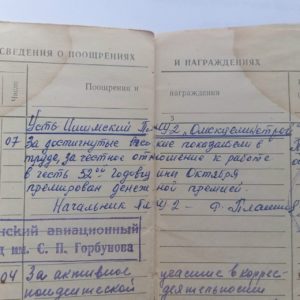 СВЕДЕНИЯ О ПООЩРЕНИЯХ И НАГРАЖДЕНИЯХ
Число
Поощрения и награждения
Усть-Ишимский
07 За достигнутые показатели в
труде, за честное отношение к работе
в честь 52ой годовщины Октября
премирован денежной премией.
Начальник
нский авиационный
д им. С. П. Горбунова
04 За активное участие в коррес-
пондентской деятельности